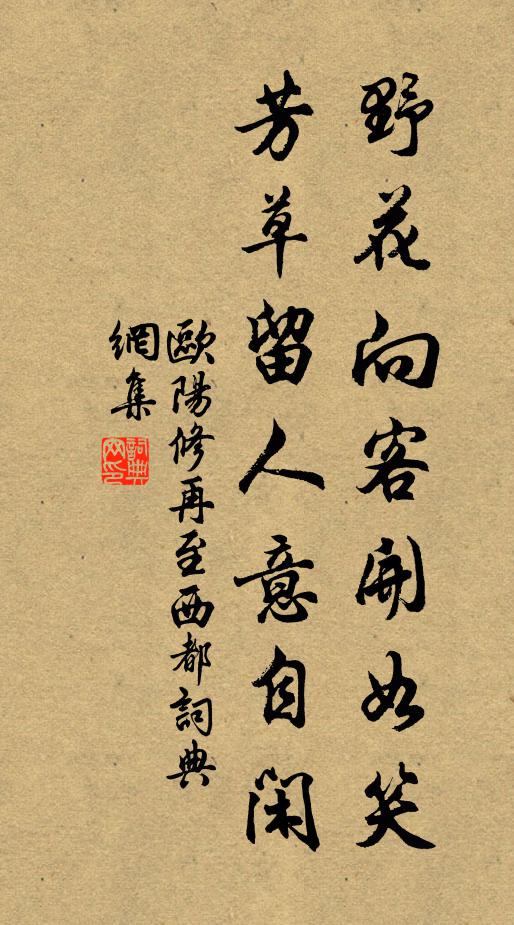 野花向客開如笑
芳草留人意自閑
歐陽修再至西都詞典
網集
詞典網印